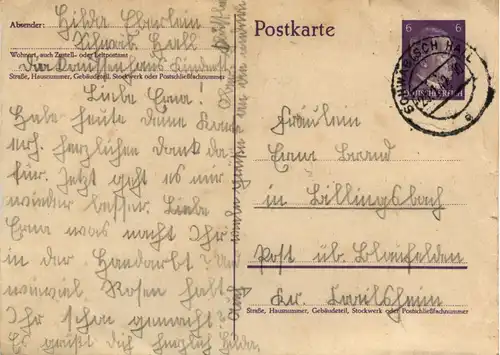 Absender: Hilda Eberlein
Schwäb. Hall
Wohnort, auch Zustell- oder Leitpostamt
Diakonissenhaus Kinder
Straße, Hausnummer, Gebäudeteil, Stockwerk oder Postschließfachnummer
Liebe Erna!
Habe heute deine Karte
erh. herzlichen Dank da-
für. Jetzt geht es mir
wieder besser. Liebe
Erna was macht Ihr
in der Handarbt? Und
wieviel Rosen habt
Ihr schon gemacht?
Es grüßt Dich herzlich Hilda
Postkarte
6 6
DEUTSCHES REICH
SCHWÄBISCH HALL
Fräulein
Erna Brand
in Billingsbach
Post üb. Blaufelden
Kr. Crailsheim
Straße, Hausnummer, Gebäudeteil, Stockwerk oder Postschließfachnummer